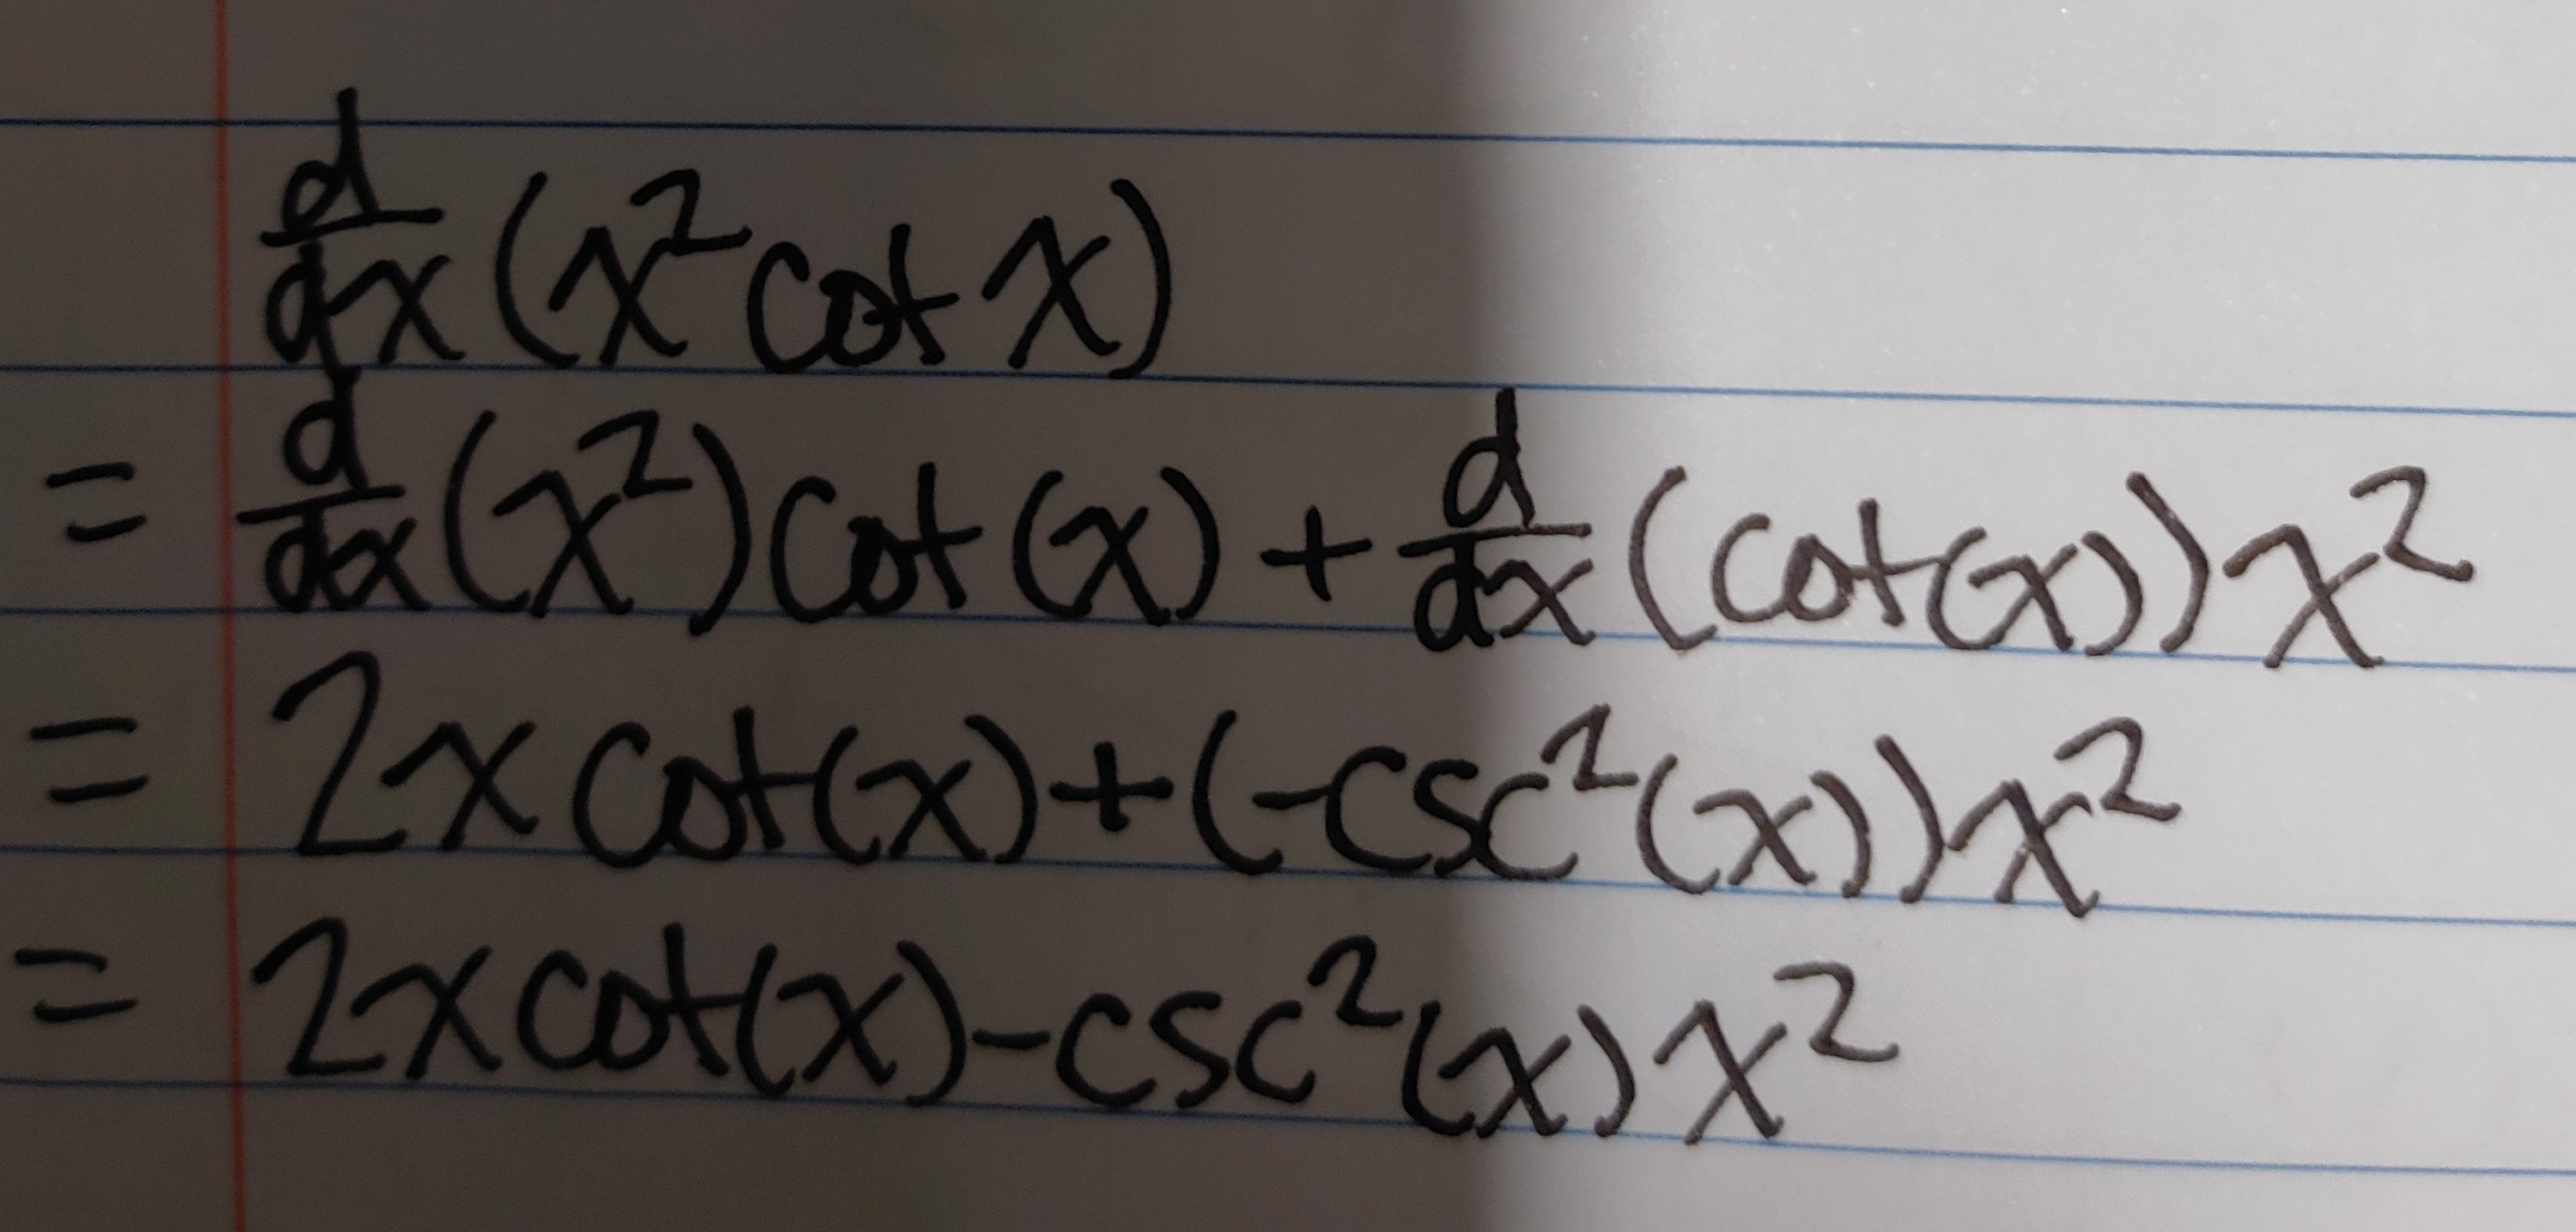 d/dx (x² cot x)
= d/dx (x²) cot (x) + d/dx (cot(x)) x²
= 2x cot(x) + (-csc²(x)) x²
= 2x cot(x) - csc²(x) x²